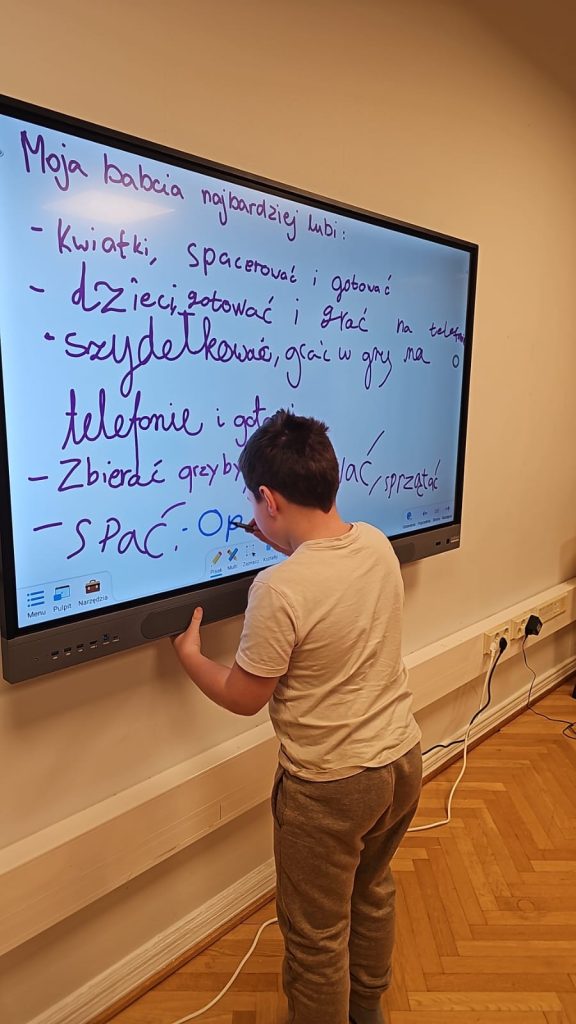 Moja babcia najbardziej lubi:
- Kwiatki, spacerować i gotować
- dzieci, gotować i grać na telefo
- szydełkować, grać w gry na
telefonie i goto
- Zbierać grzyby wać, sprzątać
- spać. - Op
Menu Pulpit Narzędzia
Pisak Multi Zaznacz Kształty